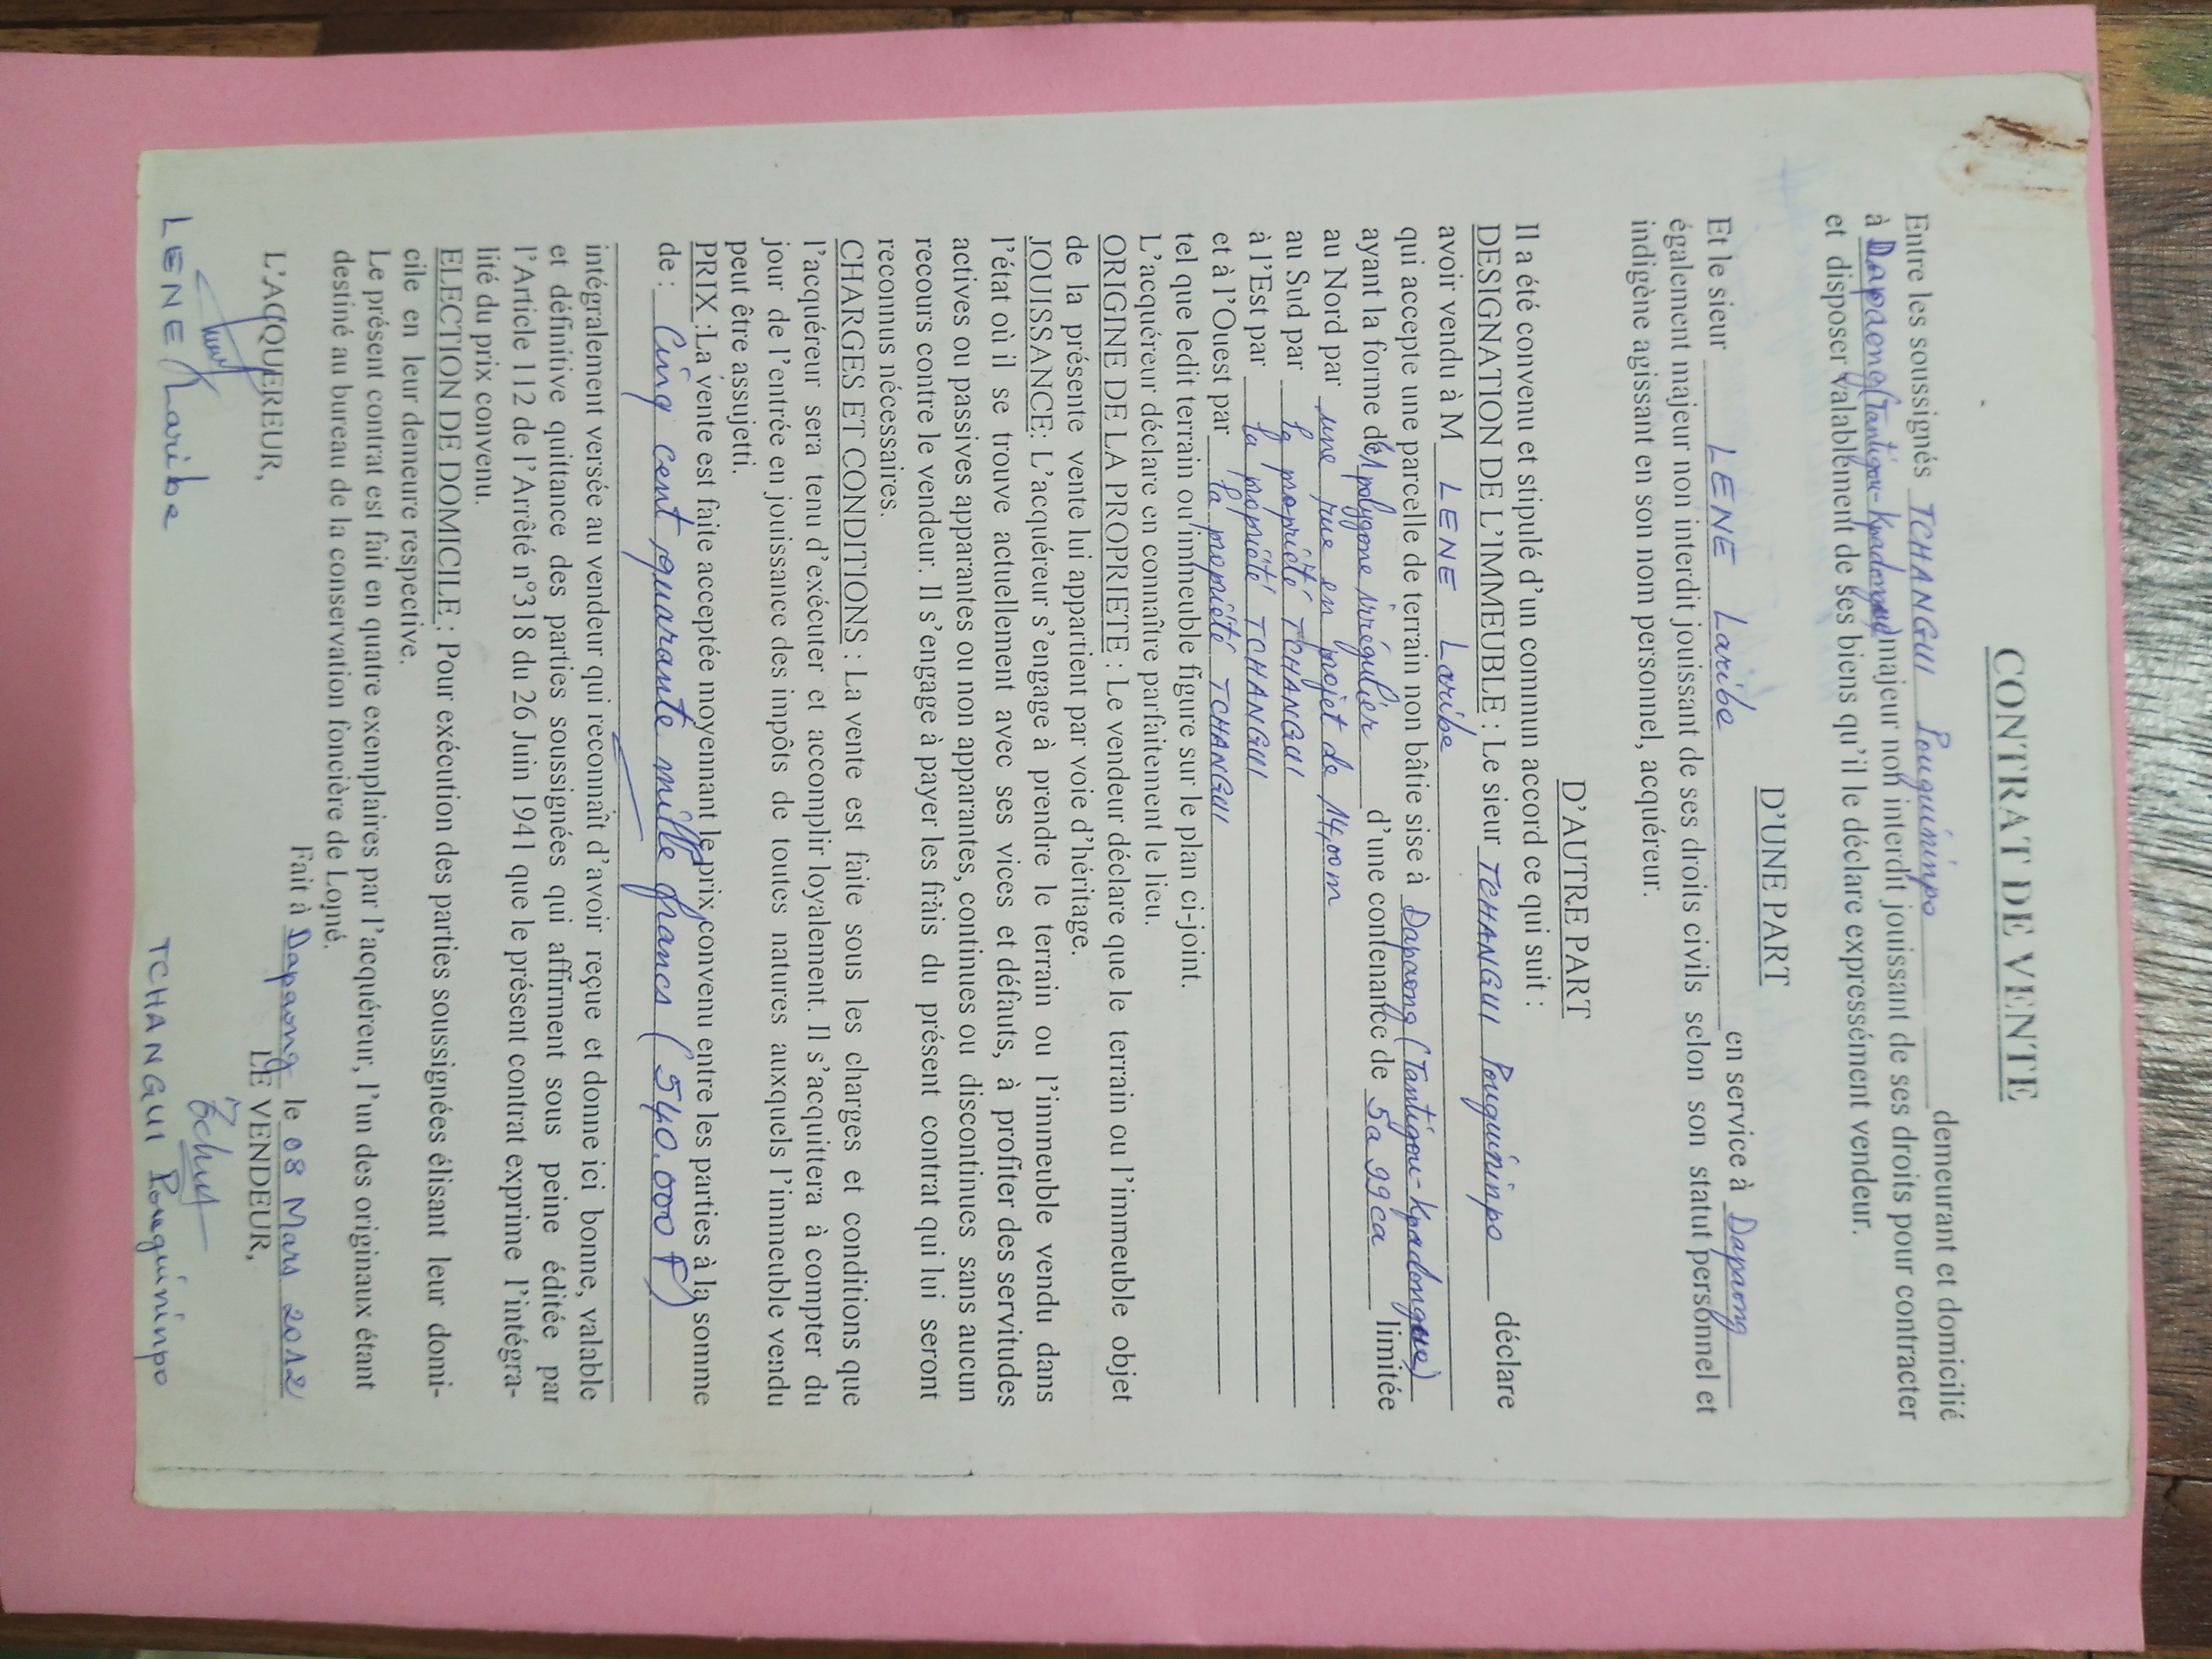 CONTRAT DE VENTE
Entre les soussignés TCHANGUI Pouguininpo demeurant et domicilié
à Dapaong (Tantigou-Kpadongue) majeur non interdit jouissant de ses droits pour contracter
et disposer valablement de ses biens qu'il le déclare expressément vendeur.
D'UNE PART
Et le sieur LENE Laribe en service à Dapaong
également majeur non interdit jouissant de ses droits civils selon son statut personnel et
indigène agissant en son nom personnel, acquéreur.
D'AUTRE PART
Il a été convenu et stipulé d'un commun accord ce qui suit :
DESIGNATION DE L'IMMEUBLE : Le sieur TCHANGUI Pouguininpo déclare
avoir vendu à M LENE Laribe
qui accepte une parcelle de terrain non bâtie sise à Dapaong (Tantigou-Kpadongue)
ayant la forme de polygone irrégulier d'une contenance de 5a 99ca limitée
au Nord par une rue en projet de 14,00m
au Sud par la propriété TCHANGUI
à l'Est par la propriété TCHANGUI
et à l'Ouest par la propriété TCHANGUI
tel que ledit terrain ou immeuble figure sur le plan ci-joint.
L'acquéreur déclare en connaître parfaitement le lieu.
ORIGINE DE LA PROPRIETE : Le vendeur déclare que le terrain ou l'immeuble objet
de la présente vente lui appartient par voie d'héritage.
JOUISSANCE: L'acquéreur s'engage à prendre le terrain ou l'immeuble vendu dans
l'état où il se trouve actuellement avec ses vices et défauts, à profiter des servitudes
actives ou passives apparantes ou non apparantes, continues ou discontinues sans aucun
recours contre le vendeur. Il s'engage à payer les frais du présent contrat qui lui seront
reconnus nécessaires.
CHARGES ET CONDITIONS : La vente est faite sous les charges et conditions que
l'acquéreur sera tenu d'exécuter et accomplir loyalement. Il s'acquittera à compter du
jour de l'entrée en jouissance des impôts de toutes natures auxquels l'immeuble vendu
peut être assujetti.
PRIX :La vente est faite acceptée moyennant le prix convenu entre les parties à la somme
de : Cinq cent quarante mille francs (540.000 f)
intégralement versée au vendeur qui reconnaît d'avoir reçue et donne ici bonne, valable
et définitive quittance des parties soussignées qui affirment sous peine éditée par
l'Article 112 de l'Arrêté n°318 du 26 Juin 1941 que le présent contrat exprime l'intégra-
lité du prix convenu.
ELECTION DE DOMICILE : Pour exécution des parties soussignées élisant leur domi-
cile en leur demeure respective.
Le présent contrat est fait en quatre exemplaires par l'acquéreur, l'un des originaux étant
destiné au bureau de la conservation foncière de Lomé.
Fait à Dapaong le 08 Mars 2012
L'ACQUEREUR, LE VENDEUR,
LENE Laribe TCHANGUI Pouguininpo